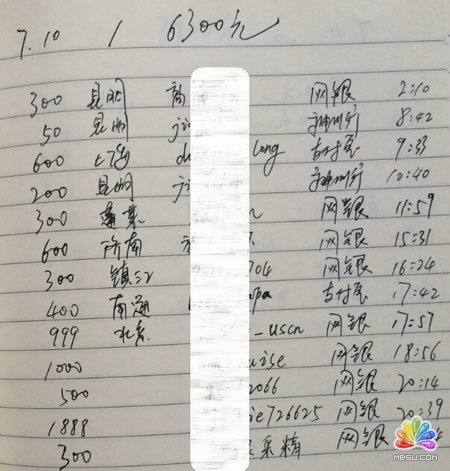 7.10 / 6300元
300 昆明 网银 2:10
50 昆明 ji 神州行 8:42
600 上海 d long 支付宝 9:33
200 昆明 ji 神州行 10:40
300 n 网银 11:59
600 济南 网银 15:31
300 镇江 704 网银 16:24
400 南通 apa 支付宝 17:42
999 北京 _uscn 网银 17:57
1000 uise 网银 18:56
500 2066 网银 20:14
1888 ie726625 网银 20:39
300 采精 网银
MBSU.COM